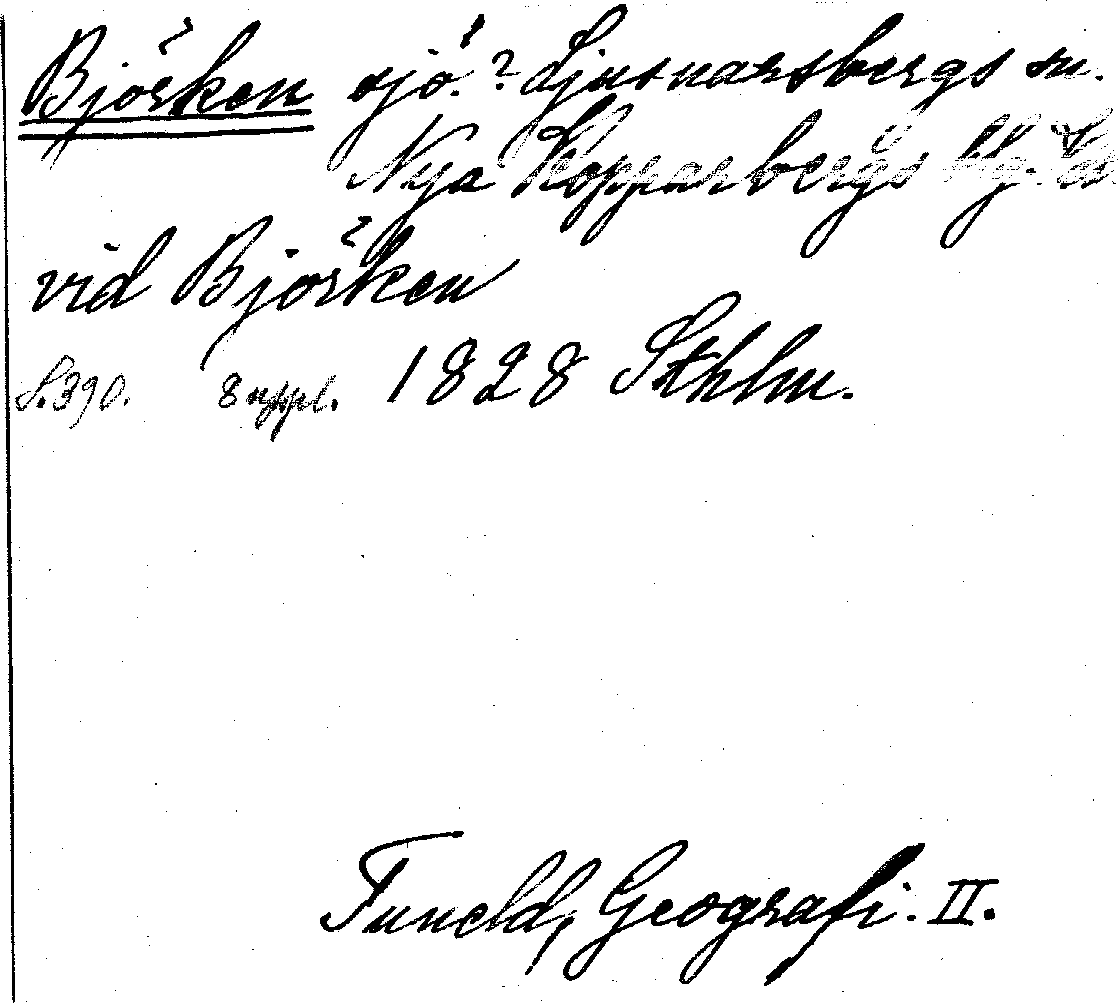 Björken sjö.? Ljusnarsbergs sn.
Nya Kopparbergs blg.
vid Björken
S.390. 8 uppl. 1828 Sthlm.
Tuneld, Geografi. II.